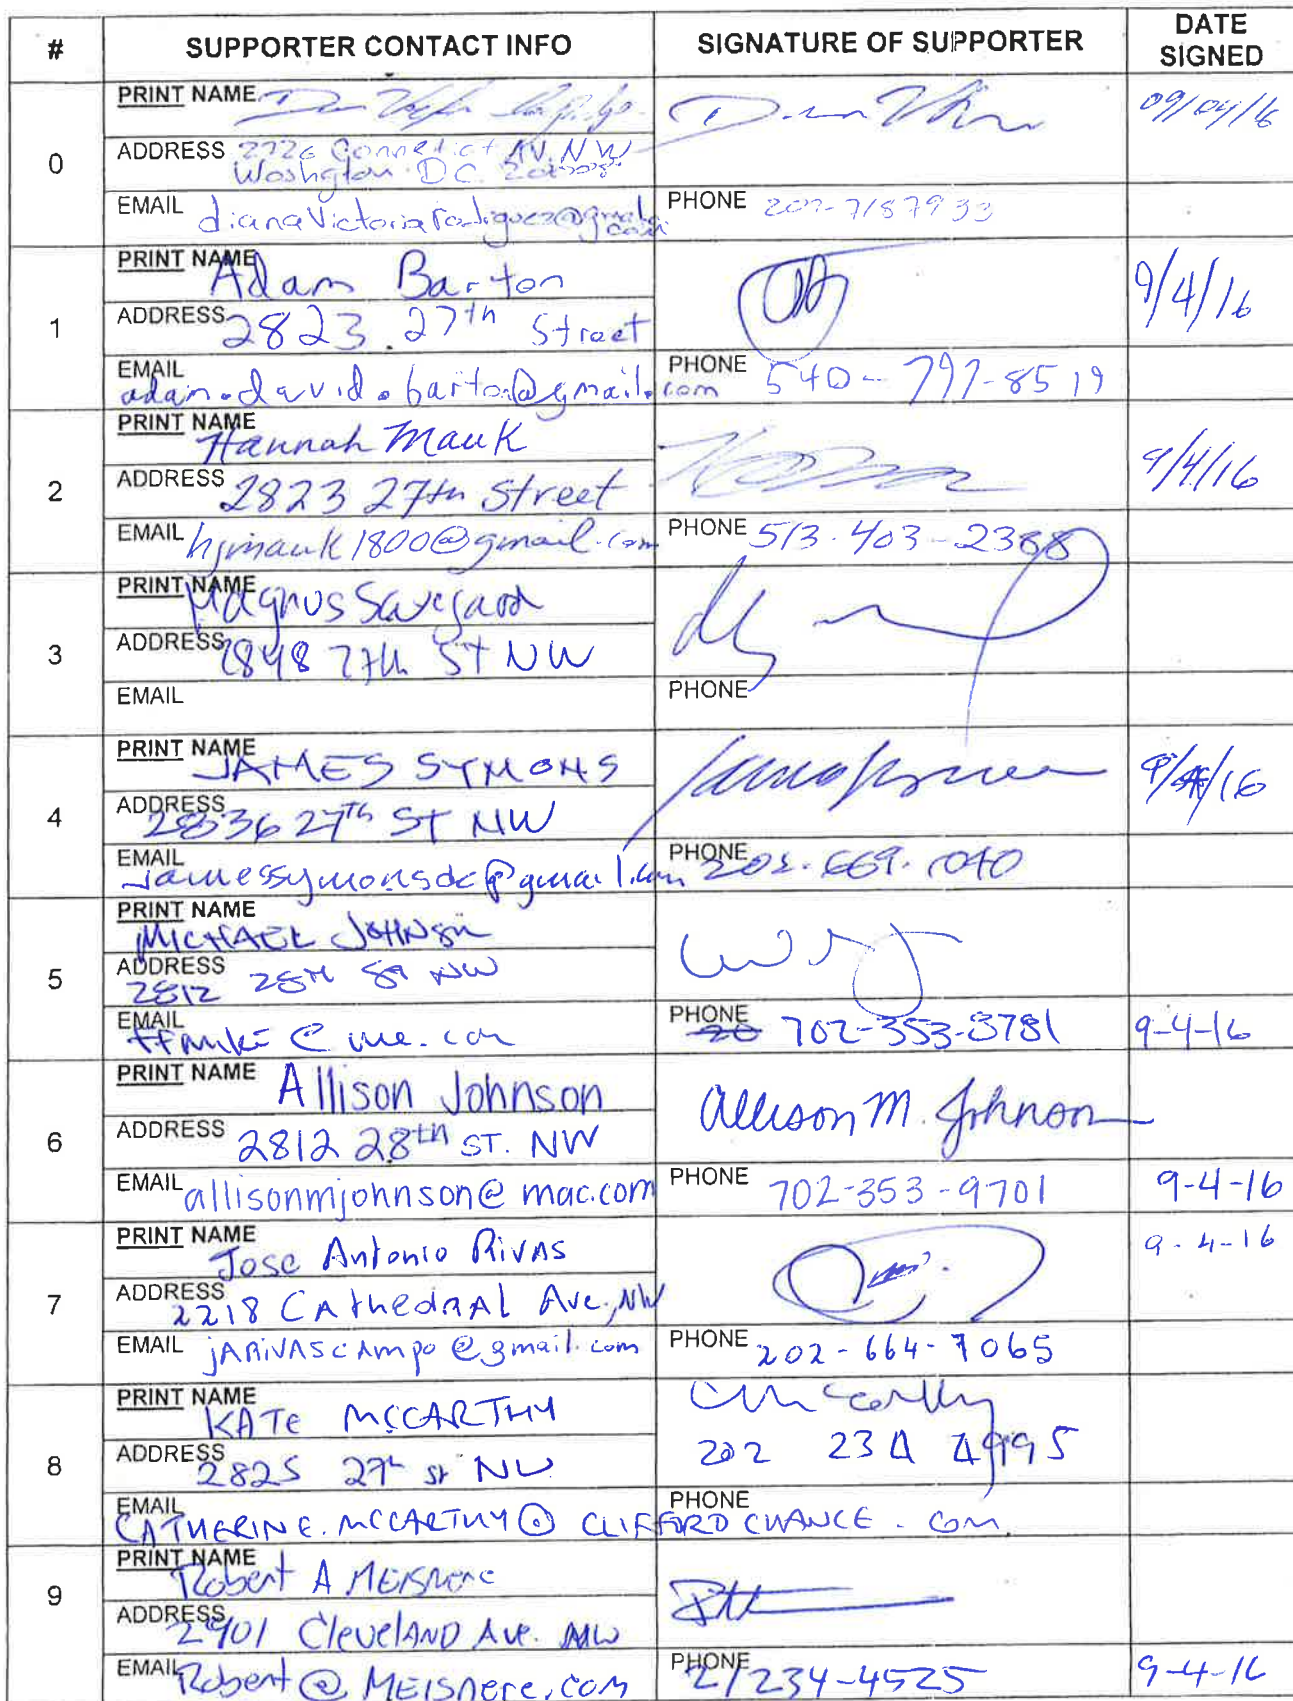 # SUPPORTER CONTACT INFO SIGNATURE OF SUPPORTER DATE SIGNED
0
PRINT NAME
09/04/16
ADDRESS 2726 Connetict AV. NW
Washgton D.C.
EMAIL dianaVictoriarodriguez@gmail.com
PHONE 202-7187933
1
PRINT NAME Adam Barton
9/4/16
ADDRESS 2823 27th Street
EMAIL adam.david.barton@gmail.com
PHONE 540-797-8519
2
PRINT NAME Hannah Mauk
9/4/16
ADDRESS 2823 27th Street
EMAIL hjmauk1800@gmail.com
PHONE 513-403-2388
3
PRINT NAME Magnus
ADDRESS 2848 27th ST NW
EMAIL
PHONE
4
PRINT NAME JAMES SYMONS
9/4/16
ADDRESS 2836 27th ST NW
EMAIL jamessymonsdc@gmail.com
PHONE 202.669.1040
5
PRINT NAME MICHAEL JOHNSON
ADDRESS 2812 28TH ST NW
EMAIL @me.com
PHONE 702-353-3781
9-4-16
6
PRINT NAME Allison Johnson
Allison M. Johnson
ADDRESS 2812 28th ST. NW
EMAIL allisonmjohnson@mac.com
PHONE 702-353-9701
9-4-16
7
PRINT NAME Jose Antonio RivAs
9-4-16
ADDRESS 2218 CAthedrAl Ave., NW
EMAIL jARiVAScAmpo@gmail.com
PHONE 202-664-7065
8
PRINT NAME KATE MCCARTHY
CMcCarthy
ADDRESS 2825 27th St NW
202 234 4995
EMAIL CATHERINE.MCCARTHY@CLIFFORDCHANCE.COM
PHONE
9
PRINT NAME Robert A MEISNere
ADDRESS 2901 CleveLAND Ave. NW
EMAIL Robert@MEISNere.com
PHONE 2/234-4525
9-4-16